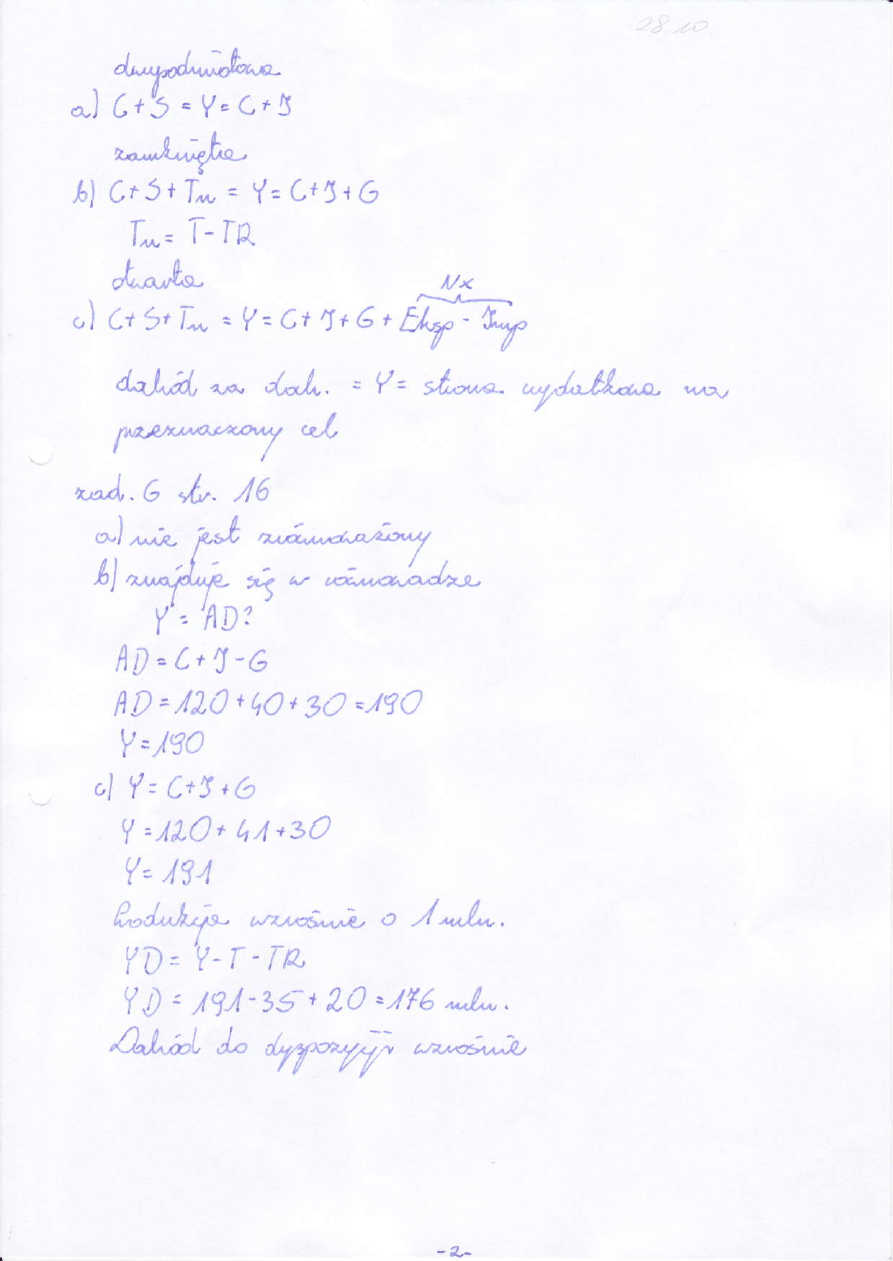 28.10
dwupodmiotowa
a) C+S = Y = C+I
zamknięta
b) C+S+Tn = Y = C+I+G
Tn = T-TR
otwarta
Nx
c) C+S+Tn = Y = C+I+G+Eksp - Imp
dochód za dch. = Y = strona wydatkowa na
przeznaczony cel
zad. 6 str. 16
a) nie jest zrównoważony
b) znajduje się w równowadze
Y = AD?
AD = C+I-G
AD = 120+40+30 = 190
Y = 190
c) Y = C+I+G
Y = 120+41+30
Y = 191
Produkcja wzrośnie o 1 mln.
YD = Y-T-TR
YD = 191-35+20 = 176 mln.
Dochód do dyspozycji wzrośnie
-2-